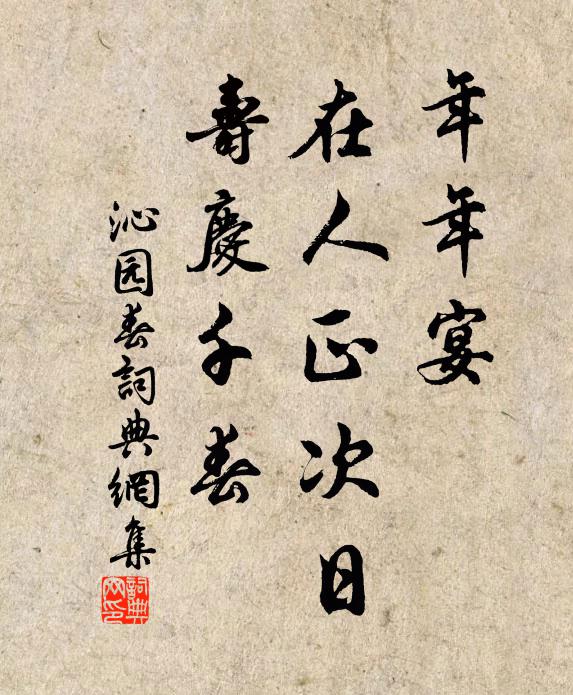 年年宴
在人正次日
壽慶千春
沁园春詞典網集
詞典
网印